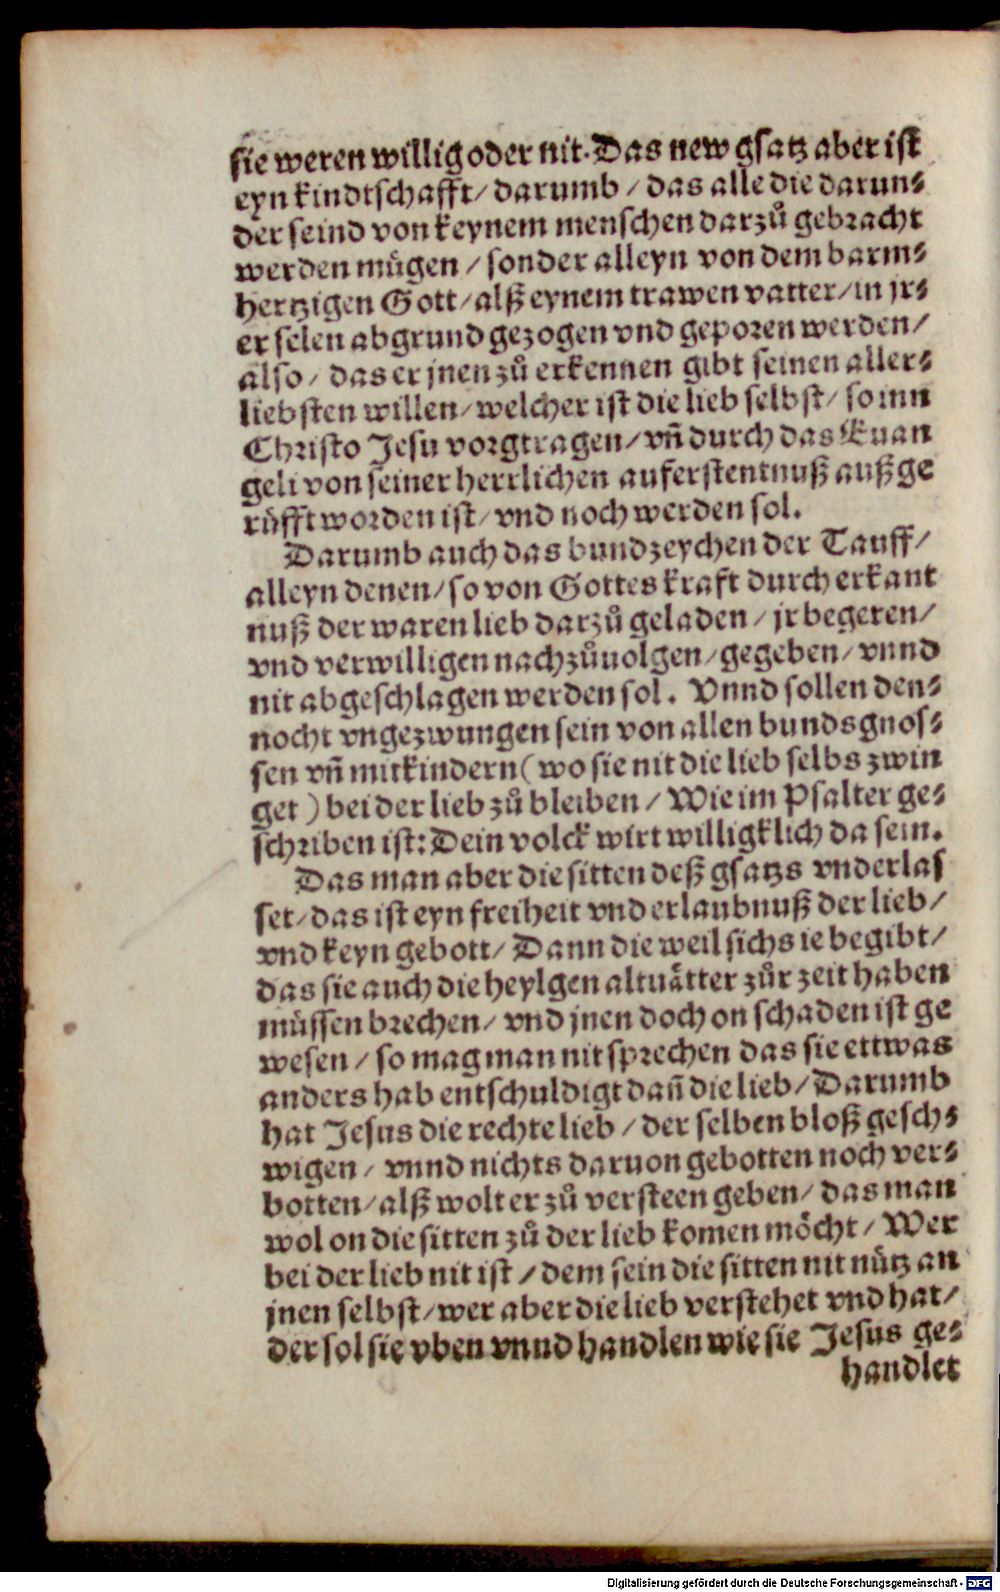 sie weren willig oder nit. Das new gsatz aber ist
eyn kindtschafft / darumb / das alle die darun⸗
der seind von keynem menschen darzů gebracht
werden mügen / sonder alleyn von dem barm⸗
hertzigen Gott / alß eynem trawen vatter / in jr⸗
er selen abgrund gezogen vnd geporen werden /
also / das er jnen zů erkennen gibt seinen aller⸗
liebsten willen / welcher ist die lieb selbst / so inn
Christo Jesu vorgtragen / vñ durch das Euan
geli von seiner herrlichen auferstentnuß außge
rüfft worden ist / vnd noch werden sol.
Darumb auch das bundzeychen der Tauff /
alleyn denen / so von Gottes kraft durch erkant
nuß der waren lieb darzů geladen / jr begeren /
vnd verwilligen nachzůuolgen / gegeben / vnnd
nit abgeschlagen werden sol. Vnnd sollen den⸗
nocht vngezwungen sein von allen bundsgnos⸗
sen vñ mitkindern ( wo sie nit die lieb selbs zwin
get ) bei der lieb zů bleiben / Wie im Psalter ge⸗
schriben ist: Dein volck wirt willigklich da sein.
Das man aber die sitten deß gsatzs vnderlas
set / das ist eyn freiheit vnd erlaubnuß der lieb /
vnd keyn gebott / Dann die weil sichs ie begibt /
das sie auch die heylgen altuätter zůr zeit haben
müssen brechen / vnd jnen doch on schaden ist ge
wesen / so mag man nit sprechen das sie ettwas
anders hab entschuldigt dañ die lieb / Darumb
hat Jesus die rechte lieb / der selben bloß gesch⸗
wigen / vnnd nichts daruon gebotten noch ver⸗
botten / alß wolt er zů versteen geben / das man
wol on die sitten zů der lieb komen möcht / Wer
bei der lieb nit ist / dem sein die sitten nit nütz an
jnen selbst / wer aber die lieb verstehet vnd hat /
der sol sie vben vnnd handlen wie sie Jesus ge⸗
handlet
Digitalisierung gefördert durch die Deutsche Forschungsgemeinschaft - DFG